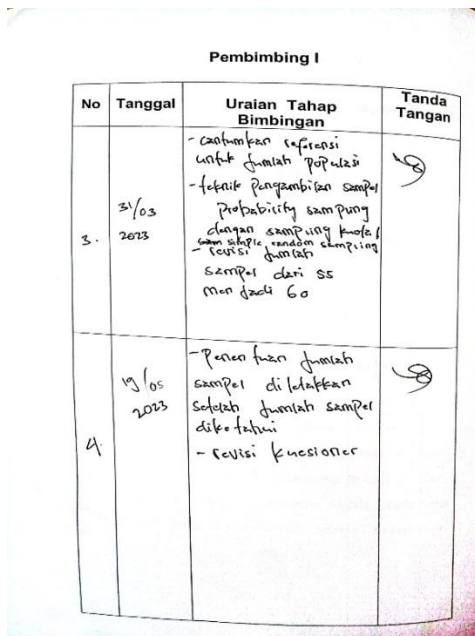 Pembimbing I
No Tanggal Uraian Tahap Bimbingan Tanda Tangan
3. 31/03 2023
- cantumkan referensi
untuk jumlah populasi
- teknik pengambilan sampel
probability sampling
dengan sampling kuota
simple random sampling
- revisi jumlah
sampel dari 55
menjadi 60
4. 19/05 2023
- Penentuan jumlah
sampel diletakkan
setelah jumlah sampel
diketahui
- revisi kuesioner